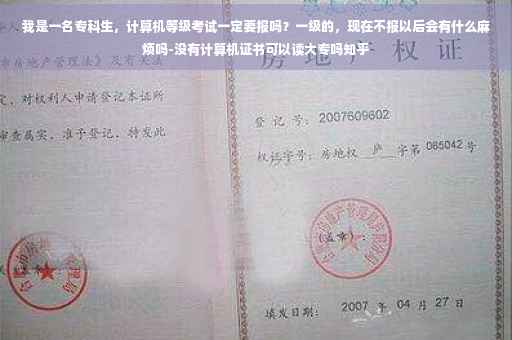 我是一名专科生，计算机等级考试一定要报吗？一级的，现在不报以后会有什么麻
烦吗-没有计算机证书可以读大专吗知乎
房地产管理法》及有关
房地产权证
定，对权利人申请登记本证所
审查属实，准予登记，特发此
登记号：2007609602
权证字号：房地权 庐 字第 085042 号
（盖章）：
填发日期：2007 年 04 月 27 日